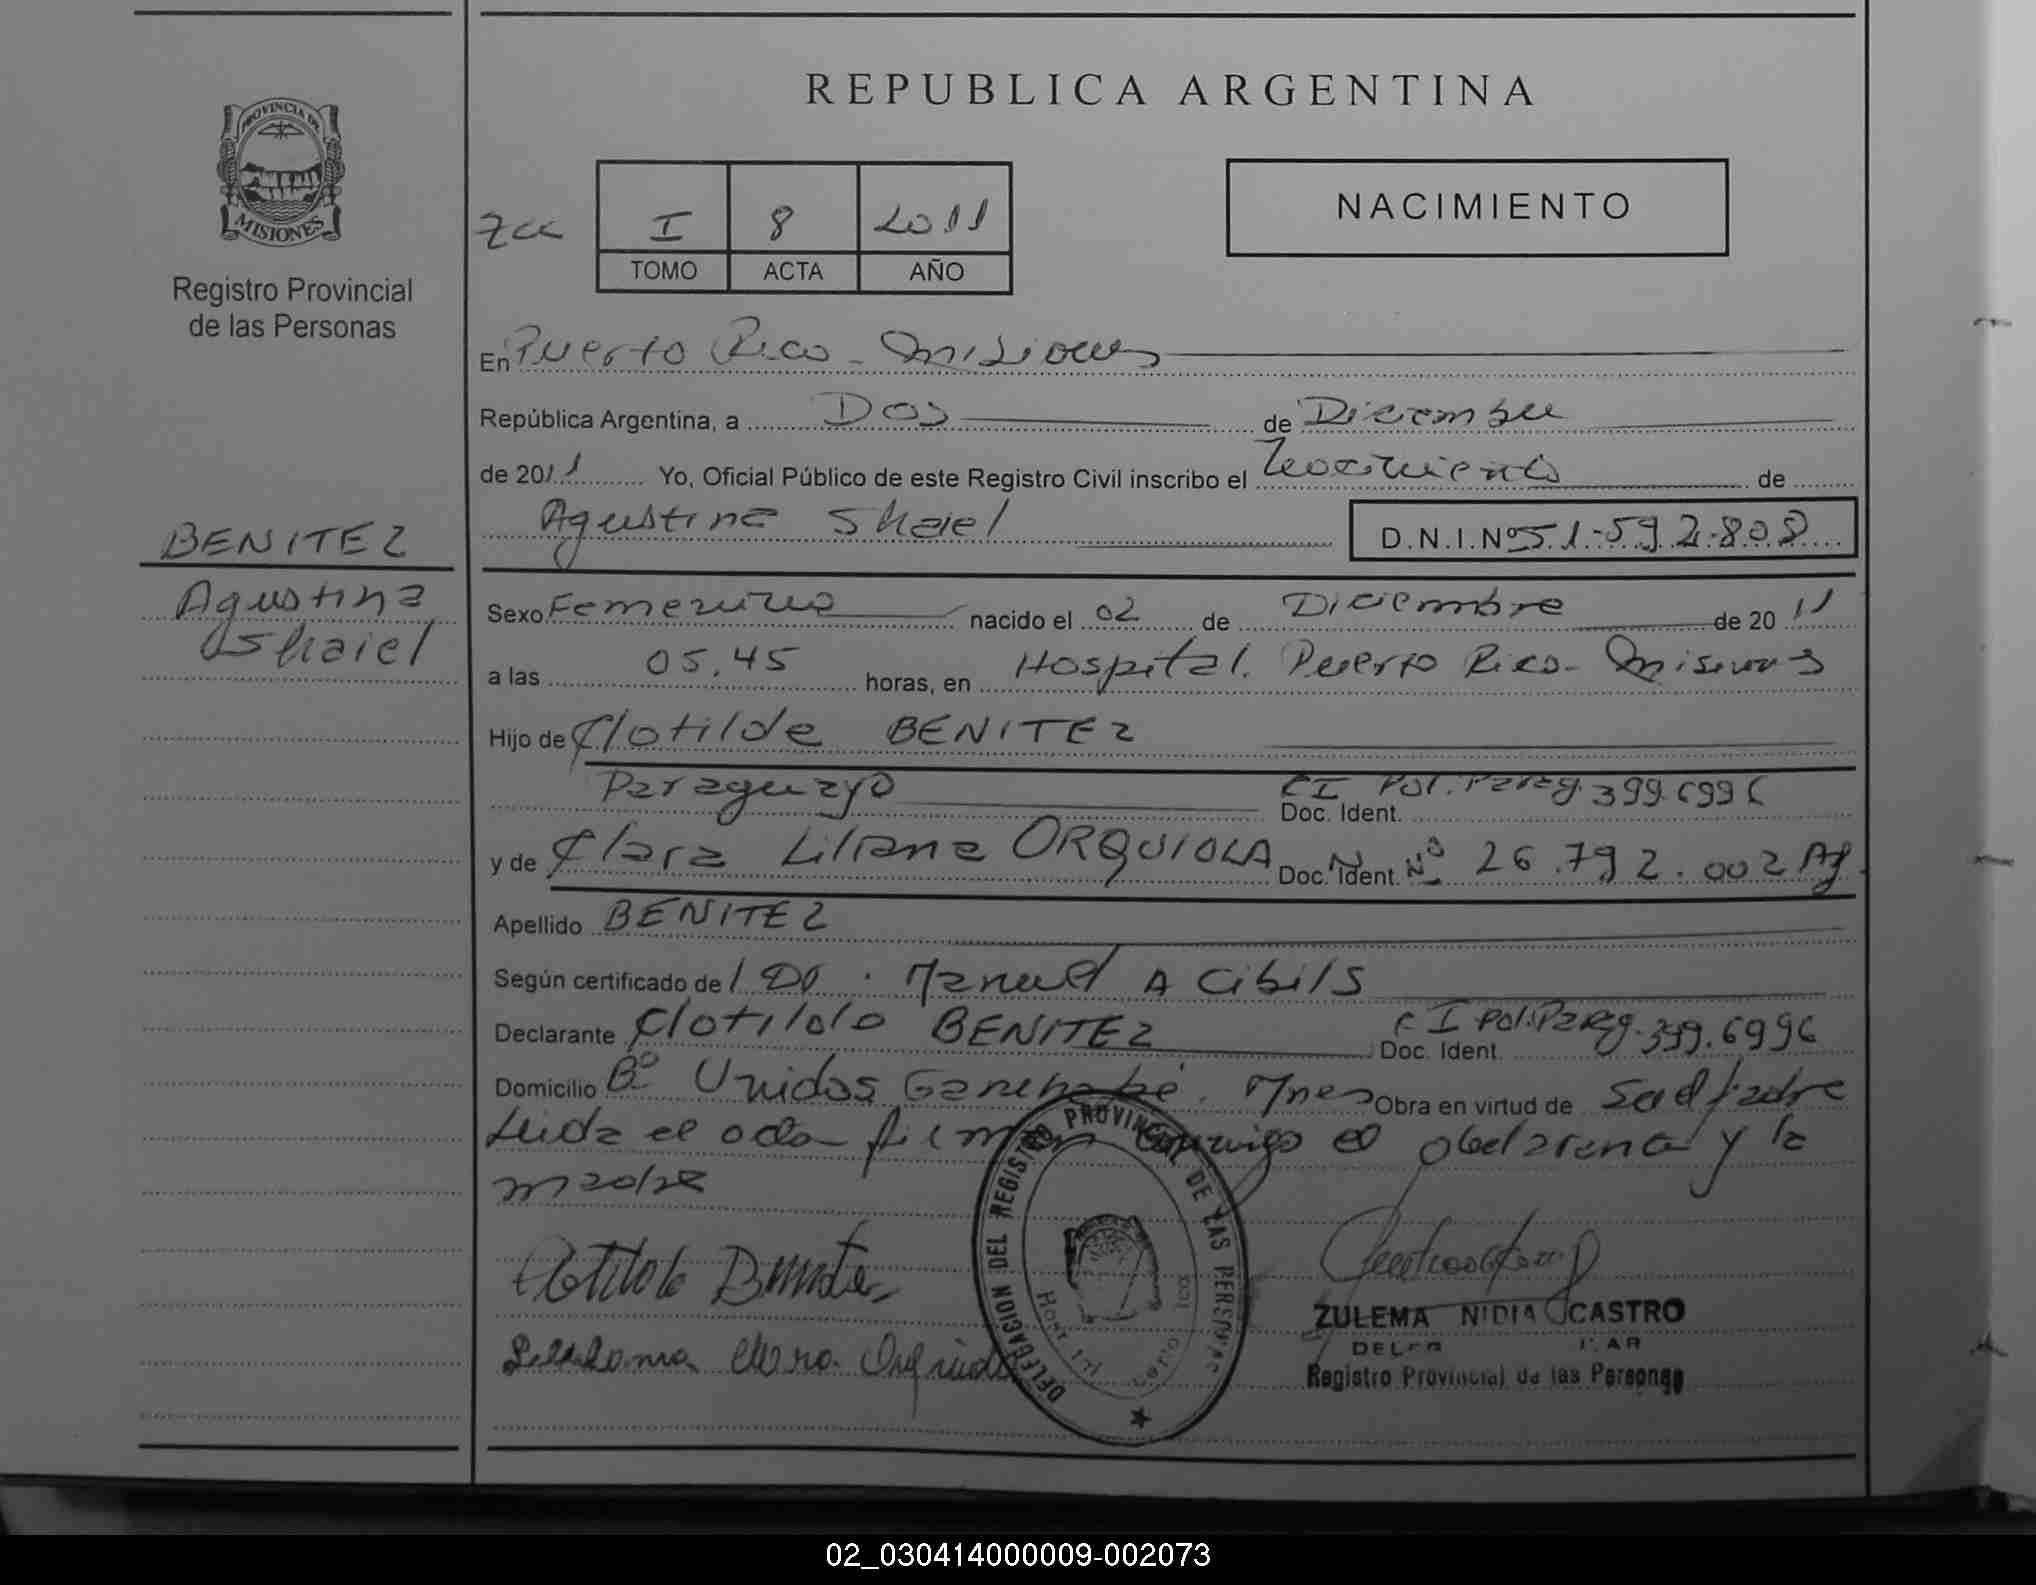 REPUBLICA ARGENTINA
PROVINCIA DE
MISIONES
Registro Provincial
de las Personas
I 8 2011
TOMO ACTA AÑO
NACIMIENTO
En Puerto Rico - Misiones
República Argentina, a Dos de Diciembre
de 2011 Yo, Oficial Público de este Registro Civil inscribo el Nacimiento de
Agustina Shaiel D.N.I.Nº 51.592.808
BENITEZ
Agustina
Shaiel
Sexo Femenino nacido el 02 de Diciembre de 2011
a las 05.45 horas, en Hospital. Puerto Rico - Misiones
Hijo de Clotilde BENITEZ
Paraguayo Doc. Ident. CI Pol. Parag. 399.6996
y de Clara Liliana ORQUIOLA Doc. Ident. Nº 26.792.002 Ag
Apellido BENITEZ
Según certificado de l Dr. Manuel A Cibils
Declarante Clotildo BENITEZ Doc. Ident. C I Pol. Parag. 399.6996
Domicilio Bº Unidos Garuhapé. Mnes Obra en virtud de ser el padre
Leida el acta firman conmigo el declarante y la
madre
Clotildo Benitez
DELEGACION DEL REGISTRO PROVINCIAL DE LAS PERSONAS
ZULEMA NIDIA CASTRO
Registro Provincial de las Personas
02_030414000009-002073